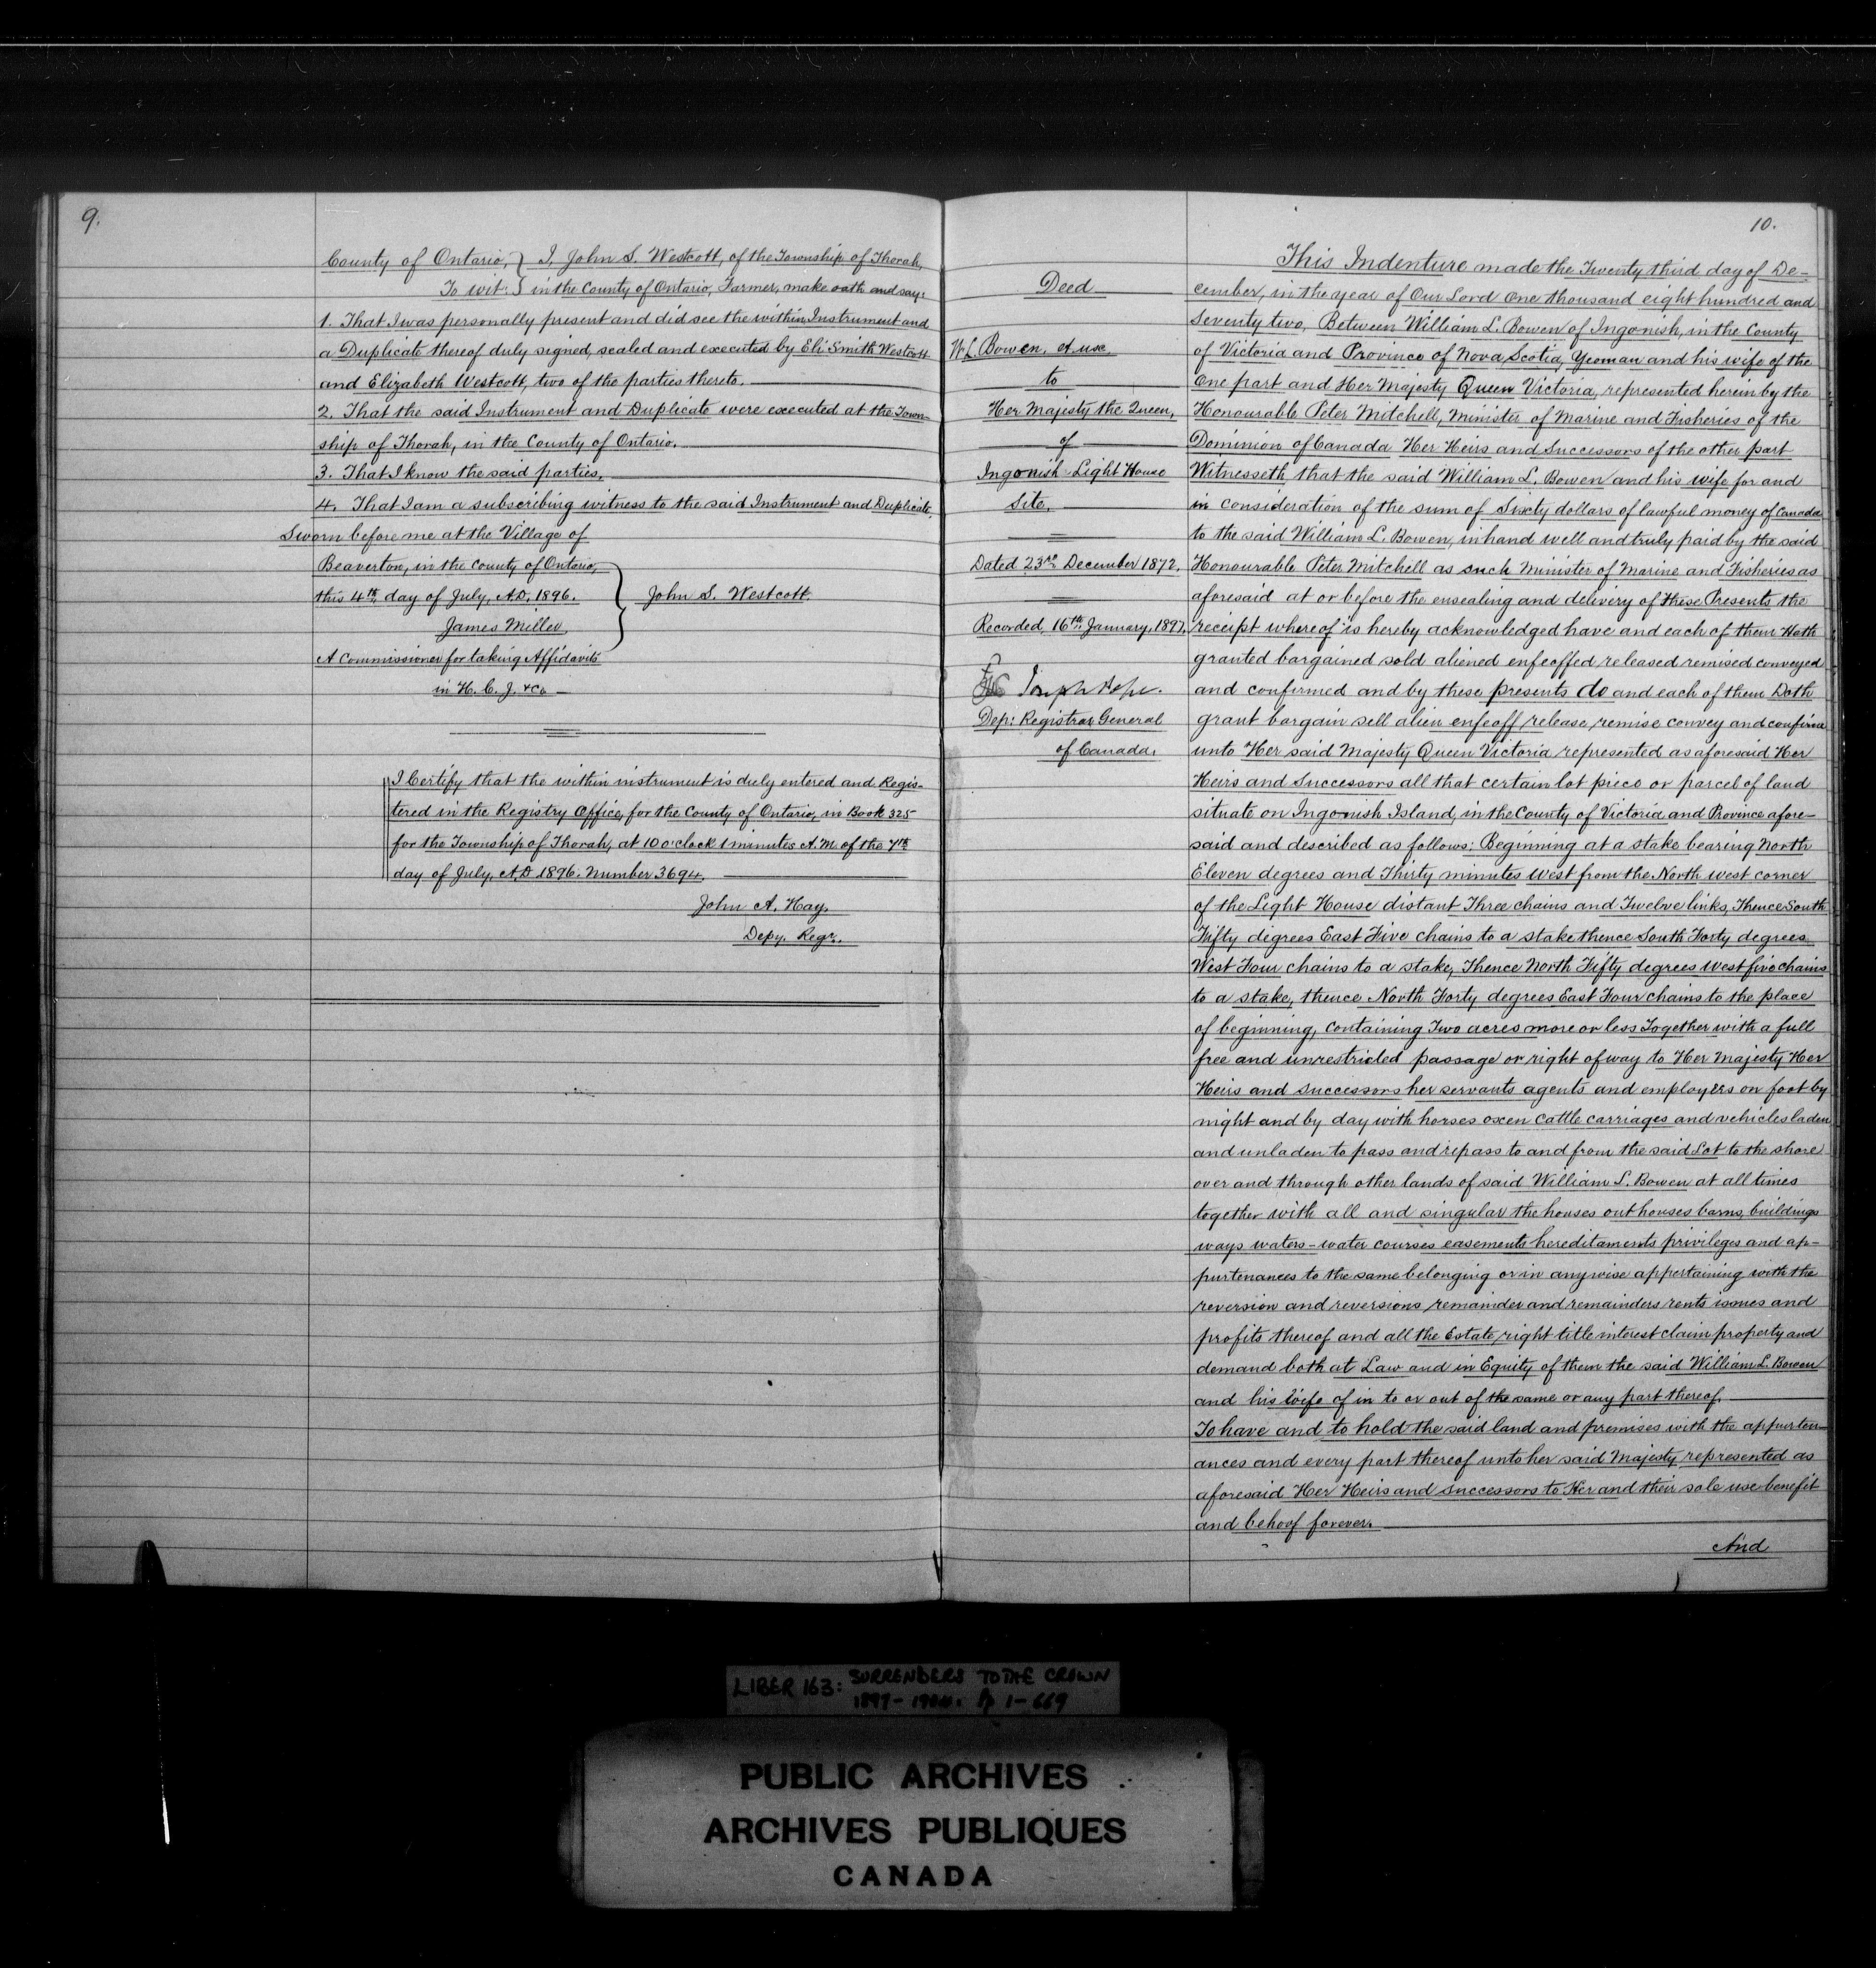 9.
County of Ontario, } I, John S. Westcott, of the Township of Thorah,
To wit: } in the County of Ontario, Farmer, make oath and say:
1. That I was personally present and did see the within Instrument and
a Duplicate thereof duly signed, sealed and executed by Eli Smith Westcott
and Elizabeth Westcott, two of the parties thereto.
2. That the said Instrument and Duplicate were executed at the Town-
ship of Thorah, in the County of Ontario.
3. That I know the said parties.
4. That I am a subscribing witness to the said Instrument and Duplicate.
Sworn before me at the Village of
Beaverton, in the County of Ontario,
this 4th day of July, A.D. 1896. } John S. Westcott.
James Miller,
A Commissioner for taking Affidavits
in H. C. J. &c
I Certify that the within instrument is duly entered and Regis-
tered in the Registry Office, for the County of Ontario, in Book 325
for the Township of Thorah, at 10 o'clock 1 minutes A.M. of the 7th
day of July, A.D 1896. Number 3694.
John A. Hay,
Depy. Regr.
10.
Deed
W. L. Bowen, et ux
to
Her Majesty the Queen,
of
Ingonish Light House
Site.
Dated 23rd December 1872.
Recorded, 16th January, 1897.
Joseph Pope.
Dep: Registrar General
of Canada.
This Indenture made the Twenty third day of De-
cember, in the year of Our Lord One thousand eight hundred and
Seventy two, Between William L. Bowen of Ingonish, in the County
of Victoria and Province of Nova Scotia, Yeoman and his wife of the
One part and Her Majesty Queen Victoria, represented herein by the
Honourable Peter Mitchell, Minister of Marine and Fisheries of the
Dominion of Canada Her Heirs and Successors of the other part
Witnesseth that the said William L. Bowen and his wife for and
in consideration of the sum of Sixty dollars of lawful money of Canada
to the said William L. Bowen, in hand well and truly paid by the said
Honourable Peter Mitchell as such Minister of Marine and Fisheries as
aforesaid at or before the ensealing and delivery of these Presents the
receipt whereof is hereby acknowledged have and each of them Hath
granted bargained sold aliened enfeoffed released remised conveyed
and confirmed and by these presents do and each of them Doth
grant bargain sell alien enfeoff release, remise convey and confirm
unto Her said Majesty Queen Victoria represented as aforesaid Her
Heirs and Successors all that certain lot piece or parcel of land
situate on Ingonish Island, in the County of Victoria and Province afore-
said and described as follows: Beginning at a stake bearing North
Eleven degrees and Thirty minutes West from the North west corner
of the Light House distant Three chains and Twelve links, Thence South
Fifty degrees East Five chains to a stake thence South Forty degrees
West Four chains to a stake, Thence North Fifty degrees West five chains
to a stake, thence North Forty degrees East Four chains to the place
of beginning, containing Two acres more or less Together with a full
free and unrestricted passage or right of way to Her Majesty Her
Heirs and Successors her servants agents and employees on foot by
night and by day with horses oxen cattle carriages and vehicles laden
and unladen to pass and repass to and from the said Lot to the shore
over and through other lands of said William L. Bowen at all times
together with all and singular the houses outhouses barns, buildings
ways waters - water courses easements hereditaments privileges and ap-
purtenances to the same belonging or in anywise appertaining with the
reversion and reversions remainder and remainders rents issues and
profits thereof and all the Estate, right title interest claim property and
demand both at Law and in Equity of them the said William L. Bowen
and his Wife of in to or out of the same or any part thereof.
To have and to hold the said land and premises with the appurten-
ances and every part thereof unto her said Majesty represented as
aforesaid Her Heirs and Successors to Her and their sole use benefit
and behoof forever.
And
LIBER 163: SURRENDERS TO THE CROWN
1897-1904. Pp 1-669
PUBLIC ARCHIVES
ARCHIVES PUBLIQUES
CANADA